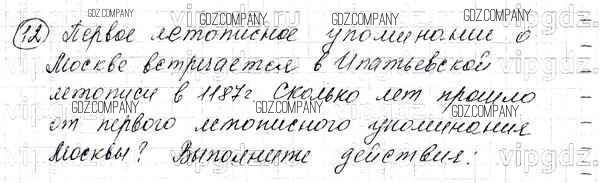 GDZ.COMPANY GDZ.COMPANY GDZ.COMPANY
12 Первое летописное упоминание о
Москве встречается в Ипатьевской
летописи в 1187г Сколько лет прошло
GDZ.COMPANY GDZ.COMPANY GDZ.COMPANY
от первого летописного упоминания
Москвы? Выполните действия:
vipgdz.